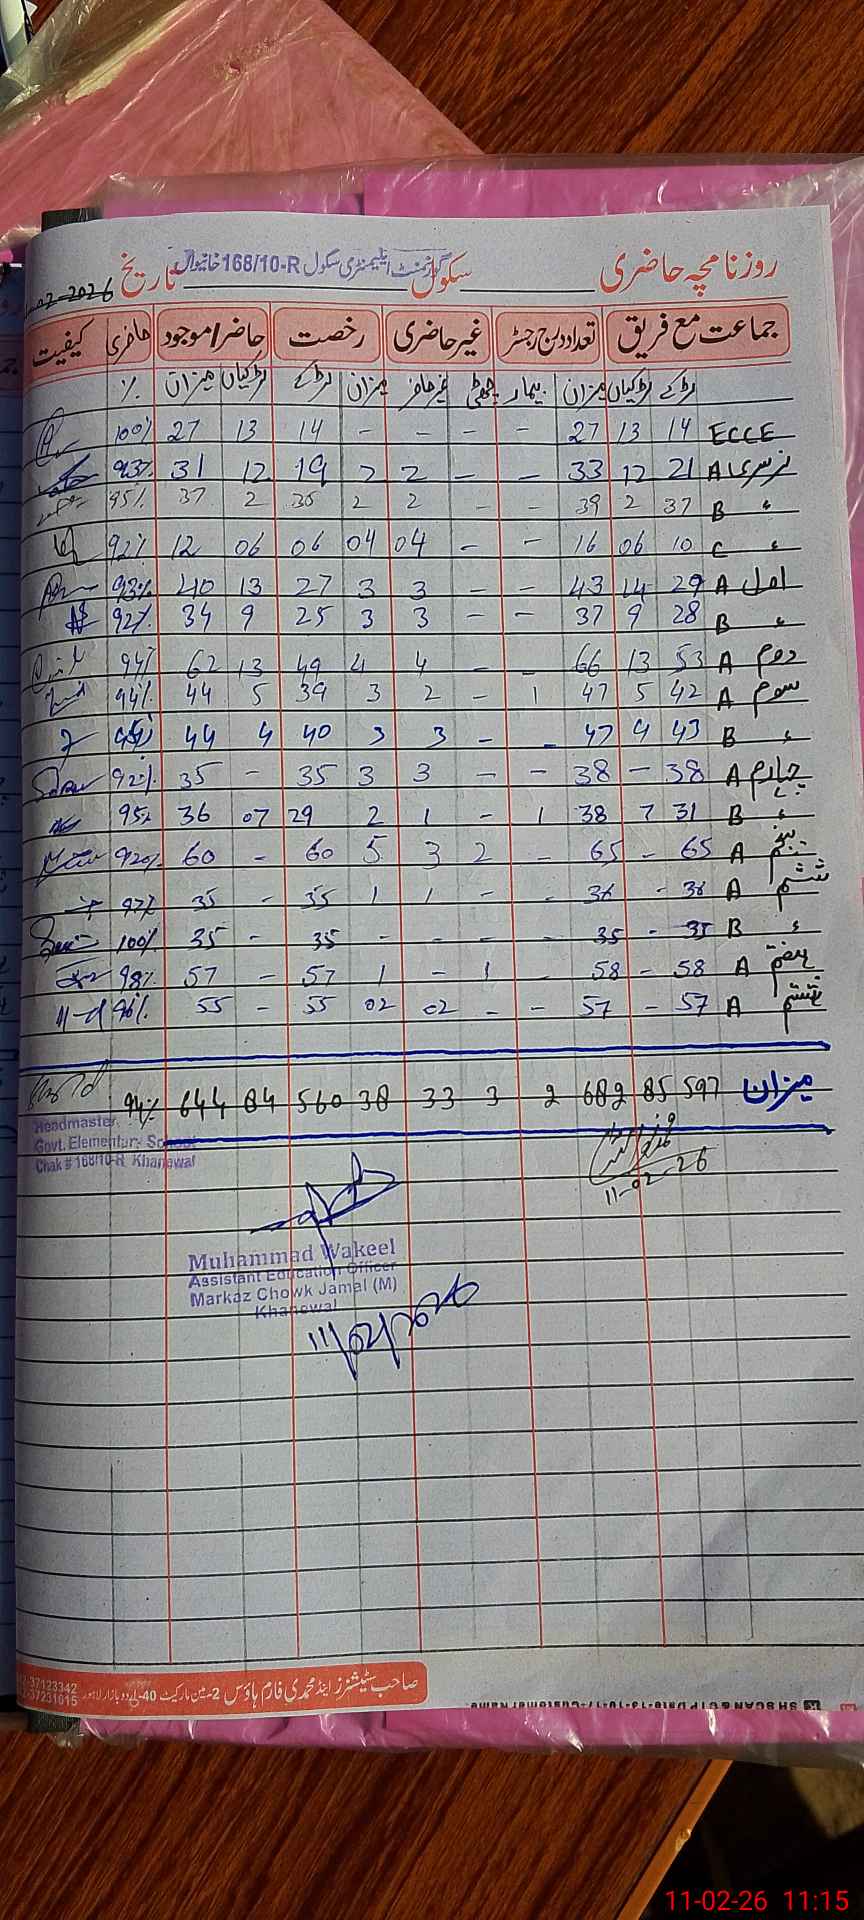 روزنامچہ حاضری سکول گورنمنٹ ایلیمنٹری سکول 168/10-R خانیوال تاریخ 02-2026
جماعت مع فریق تعداد درج رجسٹر غیر حاضری رخصت حاضر/موجود حاضری کیفیت
لڑکے لڑکیاں میزان بیمار چھٹی غیر حاضر میزان لڑکے لڑکیاں میزان %
ECCE 14 13 27 - - - - 14 13 27 100%
نرسری A 21 12 33 - - 2 2 19 12 31 93%
" B 37 2 39 - - 2 2 35 2 37 95%
" C 10 06 16 - - 04 04 06 06 12 92%
اول A 29 14 43 - - 3 3 27 13 40 93%
" B 28 9 37 - - 3 3 25 9 34 92%
دوم A 53 13 66 - - 4 4 49 13 62 94%
سوم A 42 5 47 1 - 2 3 39 5 44 94%
" B 43 4 47 - - 3 3 40 4 44
چہارم A 38 - 38 - - 3 3 35 - 35 92%
" B 31 7 38 1 - 1 2 29 07 36 95%
پنجم A 65 - 65 - 2 3 5 60 - 60 920%
ششم A 36 - 36 - - 1 1 35 - 35 97%
" B 35 - 35 - - - - 35 - 35 100%
ہفتم A 58 - 58 - 1 - 1 57 - 57 98%
ہشتم A 57 - 57 - - 02 02 55 - 55 96%
میزان 597 85 682 2 3 33 38 560 84 644 94%
Headmaster
Govt. Elementary School
Chak # 168/10-R Khanewal
11-02-26
Muhammad Wakeel
Assistant Education Officer
Markaz Chowk Jamal (M)
Khanewal
11/02/2026
صاحب سٹیشنرز اینڈ محمدی فارم ہاؤس 2-مین مارکیٹ 40-اردو بازار لاہور
37123342
37231015
11-02-26 11:15